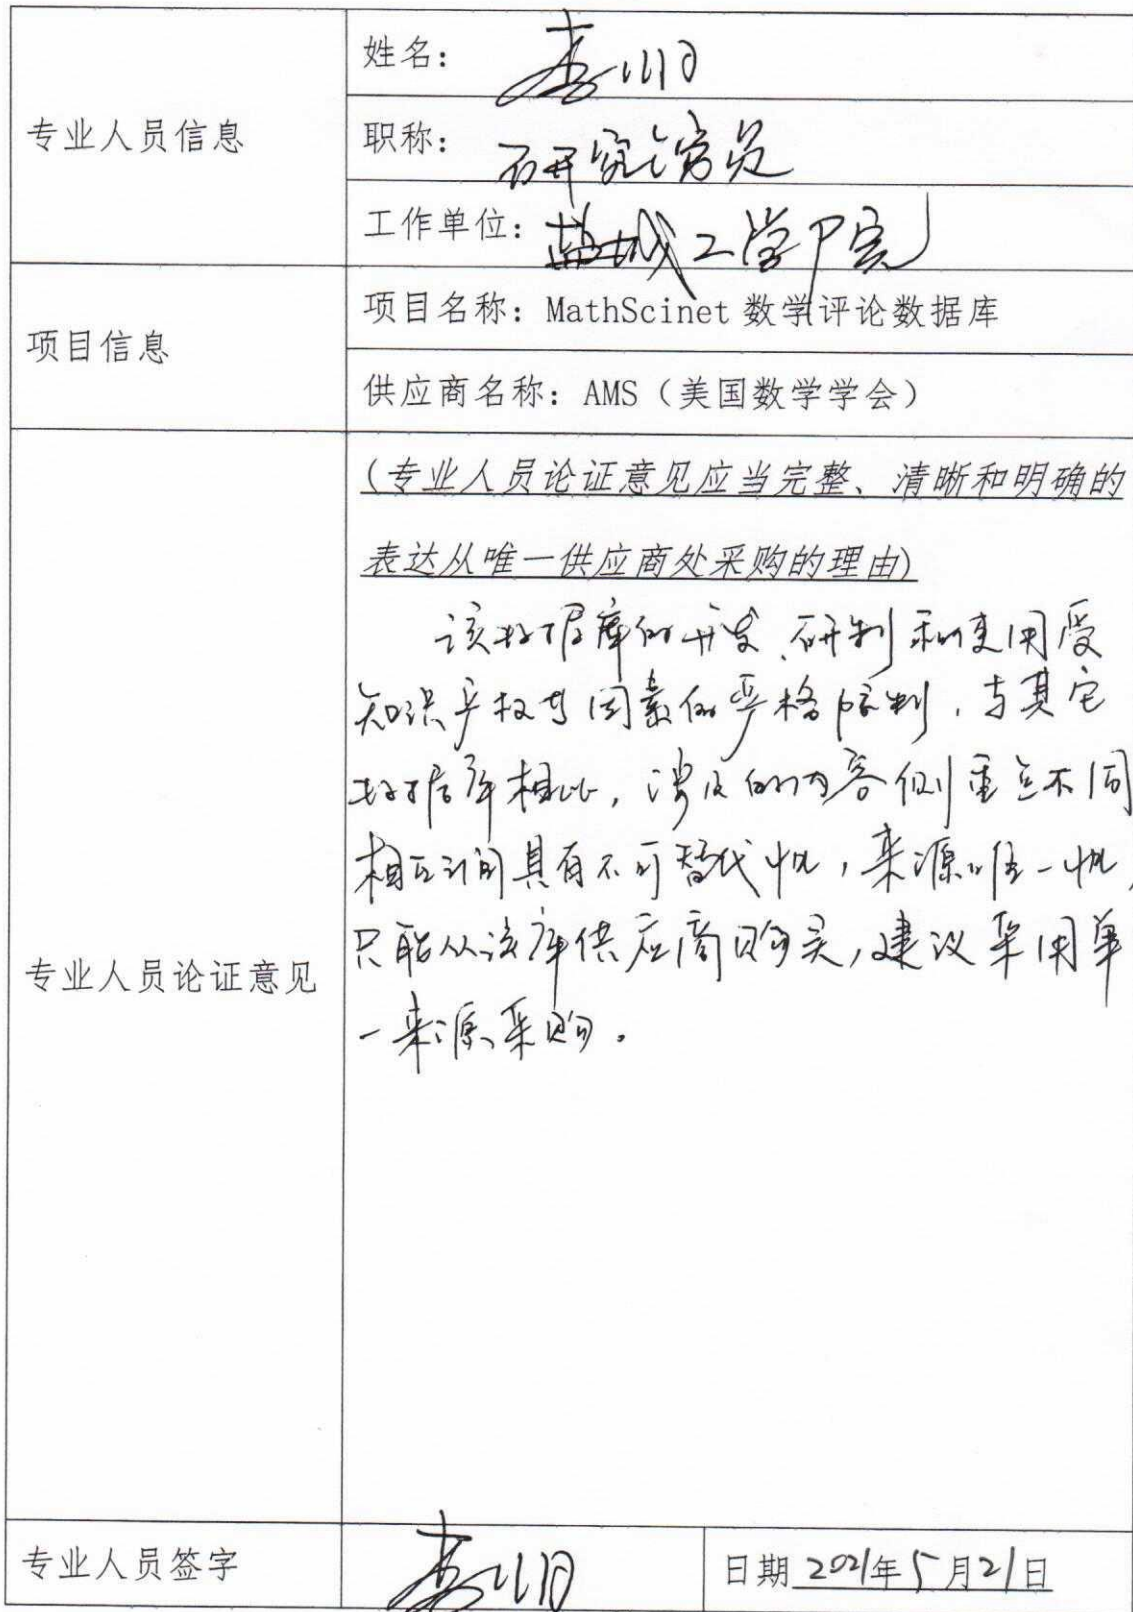 专业人员信息
姓名：
职称： 研究馆员
工作单位： 盐城工学院
项目信息
项目名称：MathScinet 数学评论数据库
供应商名称：AMS（美国数学学会）
专业人员论证意见
（专业人员论证意见应当完整、清晰和明确的
表达从唯一供应商处采购的理由）
该数据库的开发、研制和使用受
知识产权等因素的严格限制，与其它
数据库相比，涉及的内容侧重点不同
相互间具有不可替代性，来源唯一性，
只能从该库供应商购买，建议采用单
一来源采购。
专业人员签字
日期 2021年5月21日